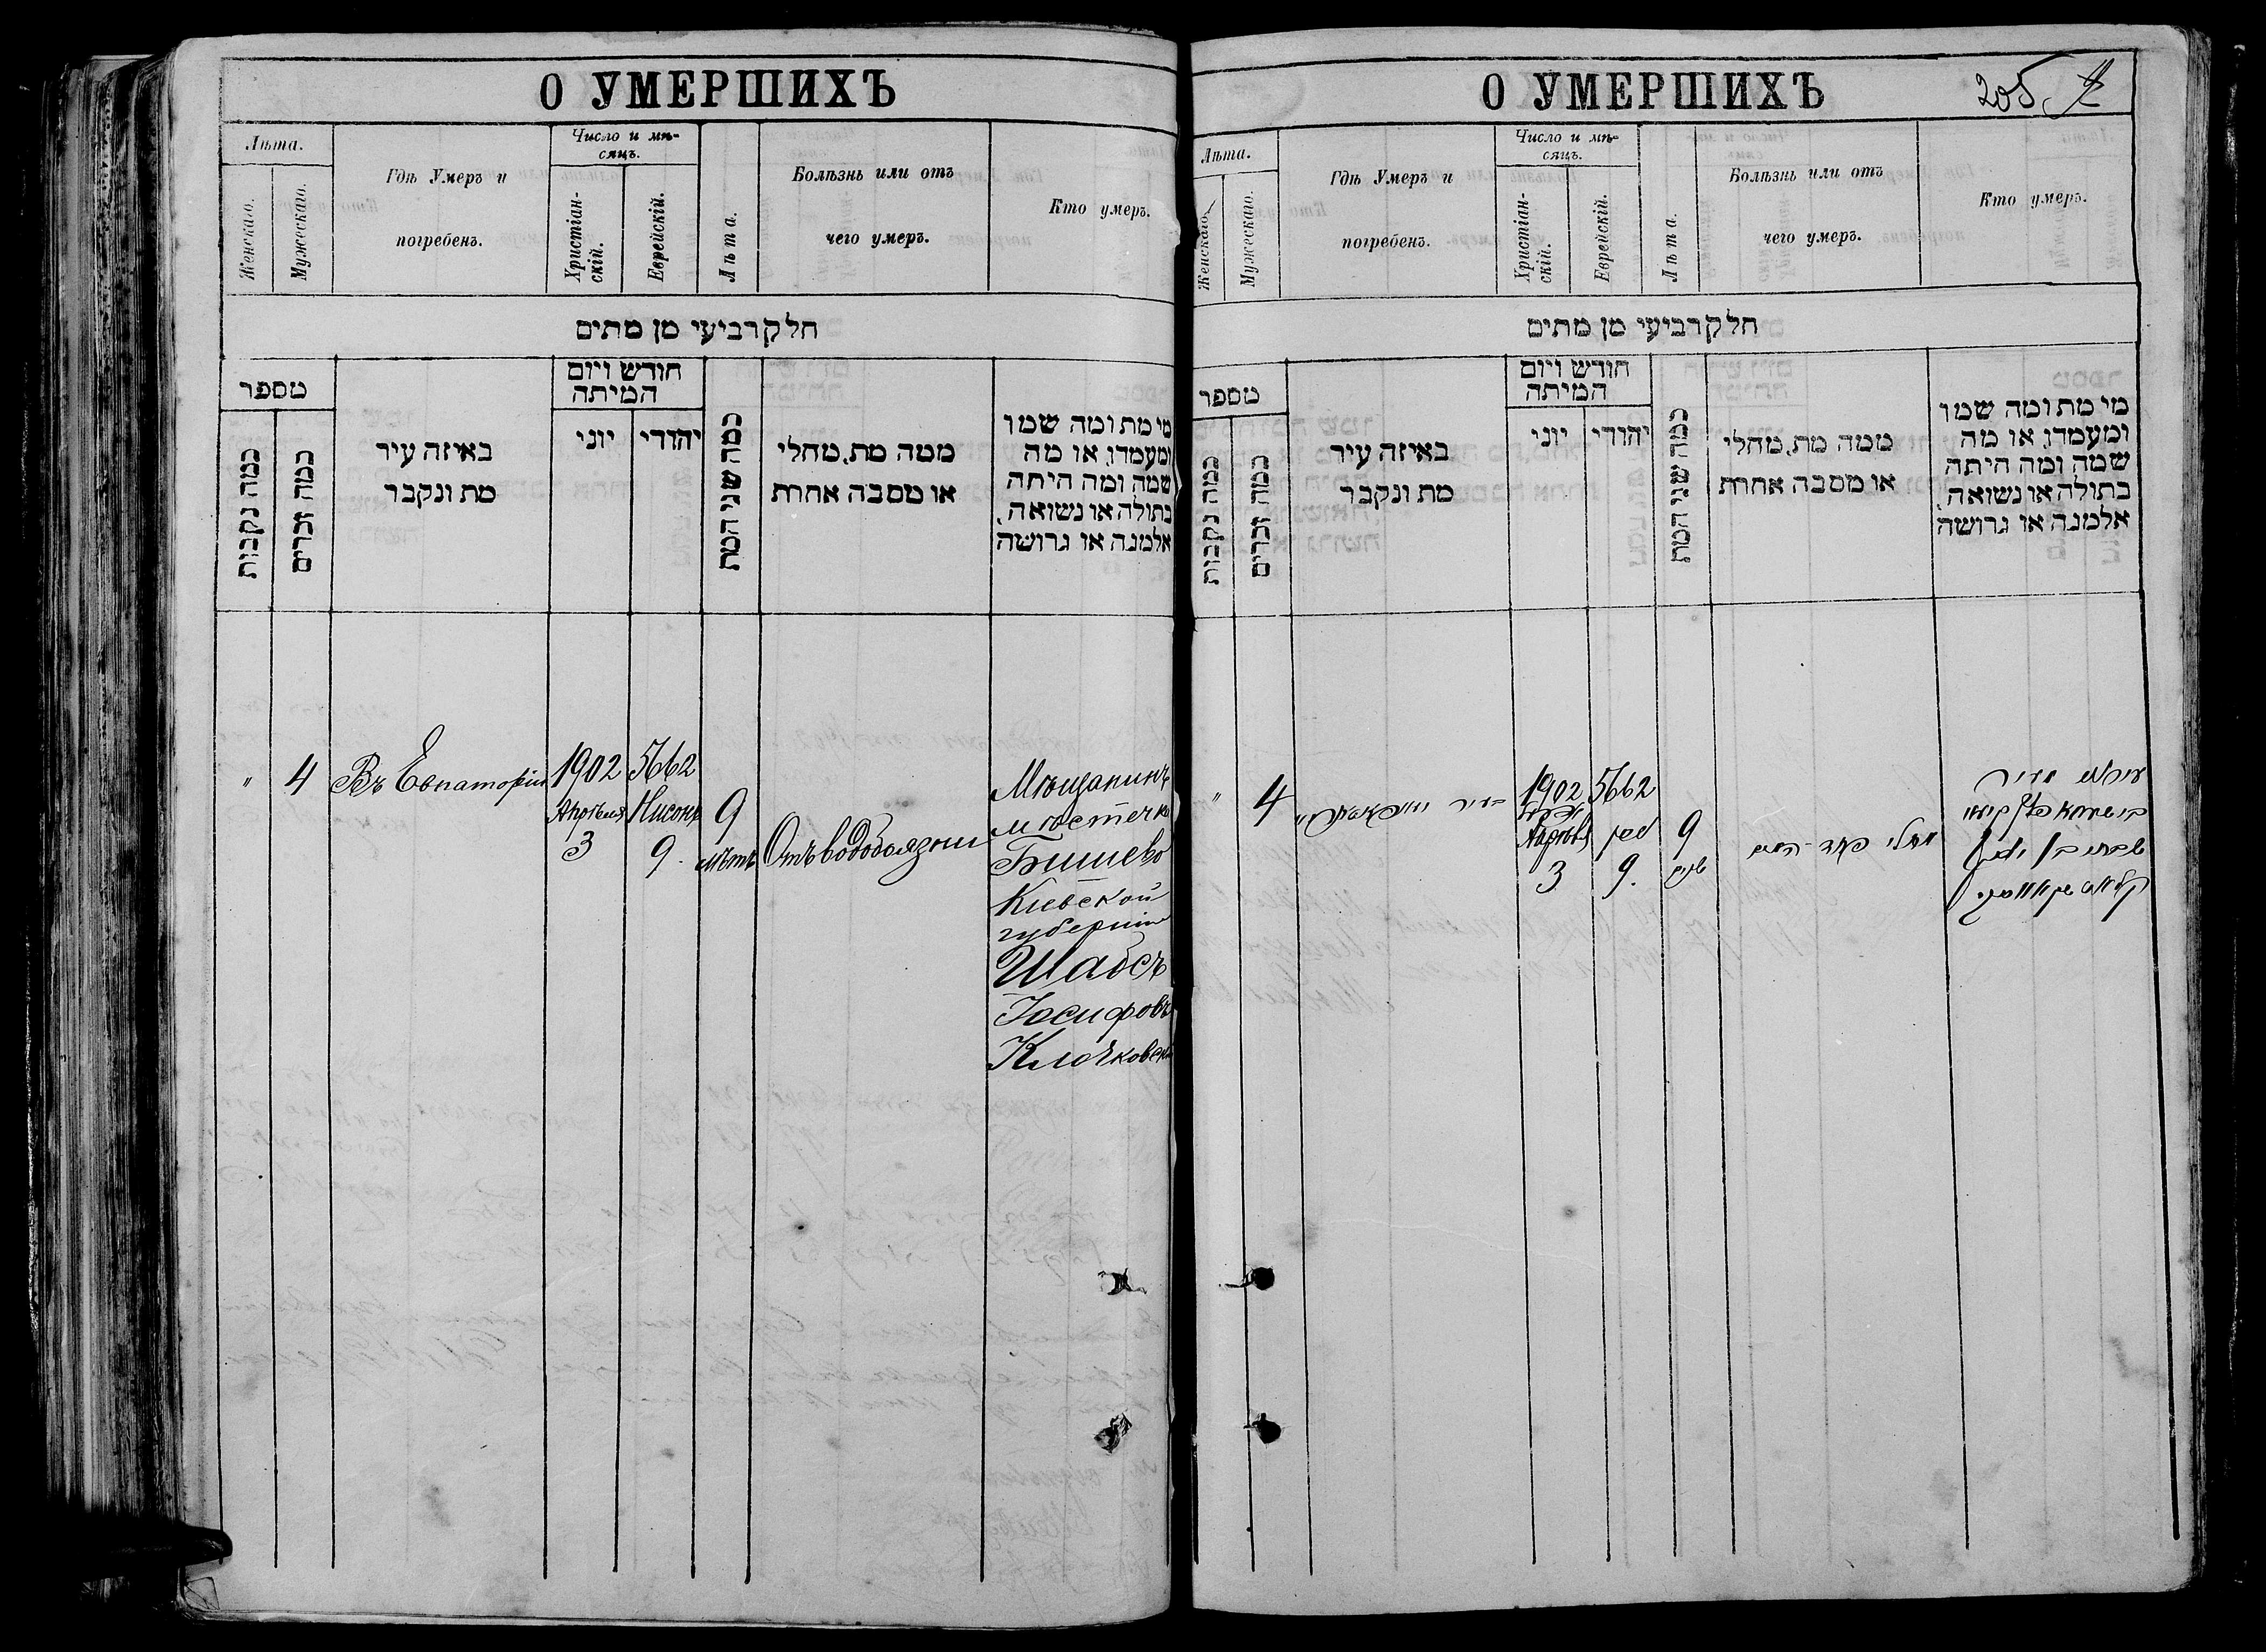 О УМЕРШИХЪ
Лѣта.
Женскаго.
Мужескаго.
Гдѣ Умеръ и
погребенъ.
Число и мѣ-
сяцъ.
Христіан-
скій.
Еврейскій.
Лѣта.
Болѣзнь или отъ
чего умеръ.
Кто умеръ.
חלק רביעי מן מתים
מספר
כמה נקבות
כמה זכרים
באיזה עיר
מת ונקבר
חודש ויום
המיתה
יוני
יהודי
כמה שני המת
ממה מת, מחלי
או מסבה אחרת
מי מת ומה שמו
ומעמדו, או מה
שמה ומה היתה
בתולה או נשואה,
אלמנה או גרושה
"
4
Въ Евпаторіи
1902
Апрѣля
3
5662
Нисонъ
9.
9
лѣтъ
Отъ водобоязни
Мѣщанинъ
мѣстечка
Бышево
Кіевской
губерніи
Шабсъ
Іосифовъ
Клочковскій
О УМЕРШИХЪ
205.
Лѣта.
Женскаго.
Мужескаго.
Гдѣ Умеръ и
погребенъ.
Число и мѣ-
сяцъ.
Христіан-
скій.
Еврейскій.
Лѣта.
Болѣзнь или отъ
чего умеръ.
Кто умеръ.
חלק רביעי מן מתים
מספר
כמה נקבות
כמה זכרים
באיזה עיר
מת ונקבר
חודש ויום
המיתה
יוני
יהודי
כמה שני המת
ממה מת, מחלי
או מסבה אחרת
מי מת ומה שמו
ומעמדו, או מה
שמה ומה היתה
בתולה או נשואה,
אלמנה או גרושה
"
4
1902
Апрѣля
3
5662
ניסן
9.
9
שנים